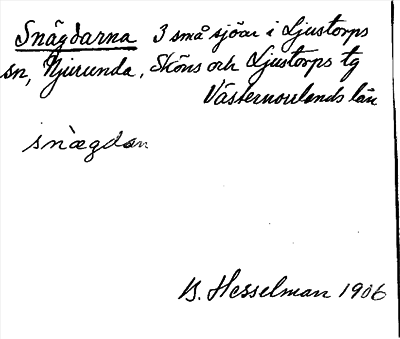 Snägdarna 3 små sjöar i Ljustorps
sn, Njurunda, Sköns och Ljustorps tg
Västernorrlands län
snægdan
B. Hesselman 1906